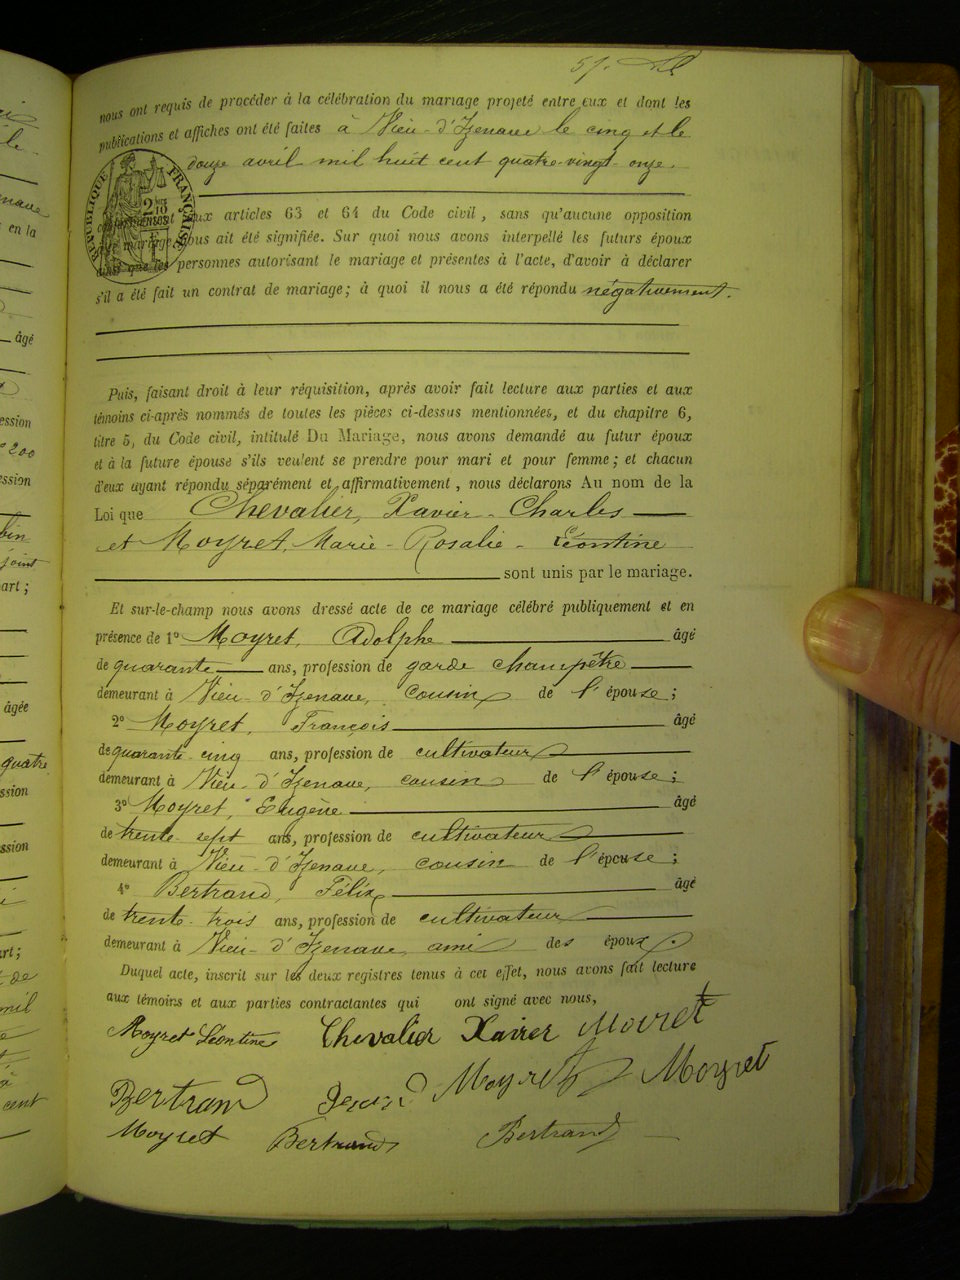 nous ont requis de procéder à la célébration du mariage projeté entre eux et dont les
publications et affiches ont été faites à Vieu-d'Izenave le cinq et le
douze avril mil huit cent quatre-vingt-onze.
conformément aux articles 63 et 64 du Code civil, sans qu'aucune opposition
mariage nous ait été signifiée. Sur quoi nous avons interpellé les futurs époux
ainsi que les personnes autorisant le mariage et présentes à l'acte, d'avoir à déclarer
s'il a été fait un contrat de mariage; à quoi il nous a été répondu négativement.
RÉPUBLIQUE FRANÇAISE
Puis, faisant droit à leur réquisition, après avoir fait lecture aux parties et aux
témoins ci-après nommés de toutes les pièces ci-dessus mentionnées, et du chapitre 6,
titre 5, du Code civil, intitulé Du Mariage, nous avons demandé au futur époux
et à la future épouse s'ils veulent se prendre pour mari et pour femme; et chacun
d'eux ayant répondu séparément et affirmativement, nous déclarons Au nom de la
Loi que Chevalier, Xavier-Charles
et Moyret, Marie-Rosalie-Léontine
sont unis par le mariage.
Et sur-le-champ nous avons dressé acte de ce mariage célébré publiquement et en
présence de 1° Moyret, Adolphe âgé
de quarante ans, profession de garde champêtre
demeurant à Vieu-d'Izenave, cousin de l'épouse;
2° Moyret, François âgé
de quarante-cinq ans, profession de cultivateur
demeurant à Vieu-d'Izenave, cousin de l'épouse;
3° Moyret, Eugène âgé
de trente-sept ans, profession de cultivateur
demeurant à Vieu-d'Izenave, cousin de l'épouse;
4° Bertrand, Félix âgé
de trente-trois ans, profession de cultivateur
demeurant à Vieu-d'Izenave ami des époux.
Duquel acte, inscrit sur les deux registres tenus à cet effet, nous avons fait lecture
aux témoins et aux parties contractantes qui ont signé avec nous,
Moyret Léontine Chevalier Xavier Moiret
Bertrand Moyret Moyret
Moyret Bertrand Bertrand